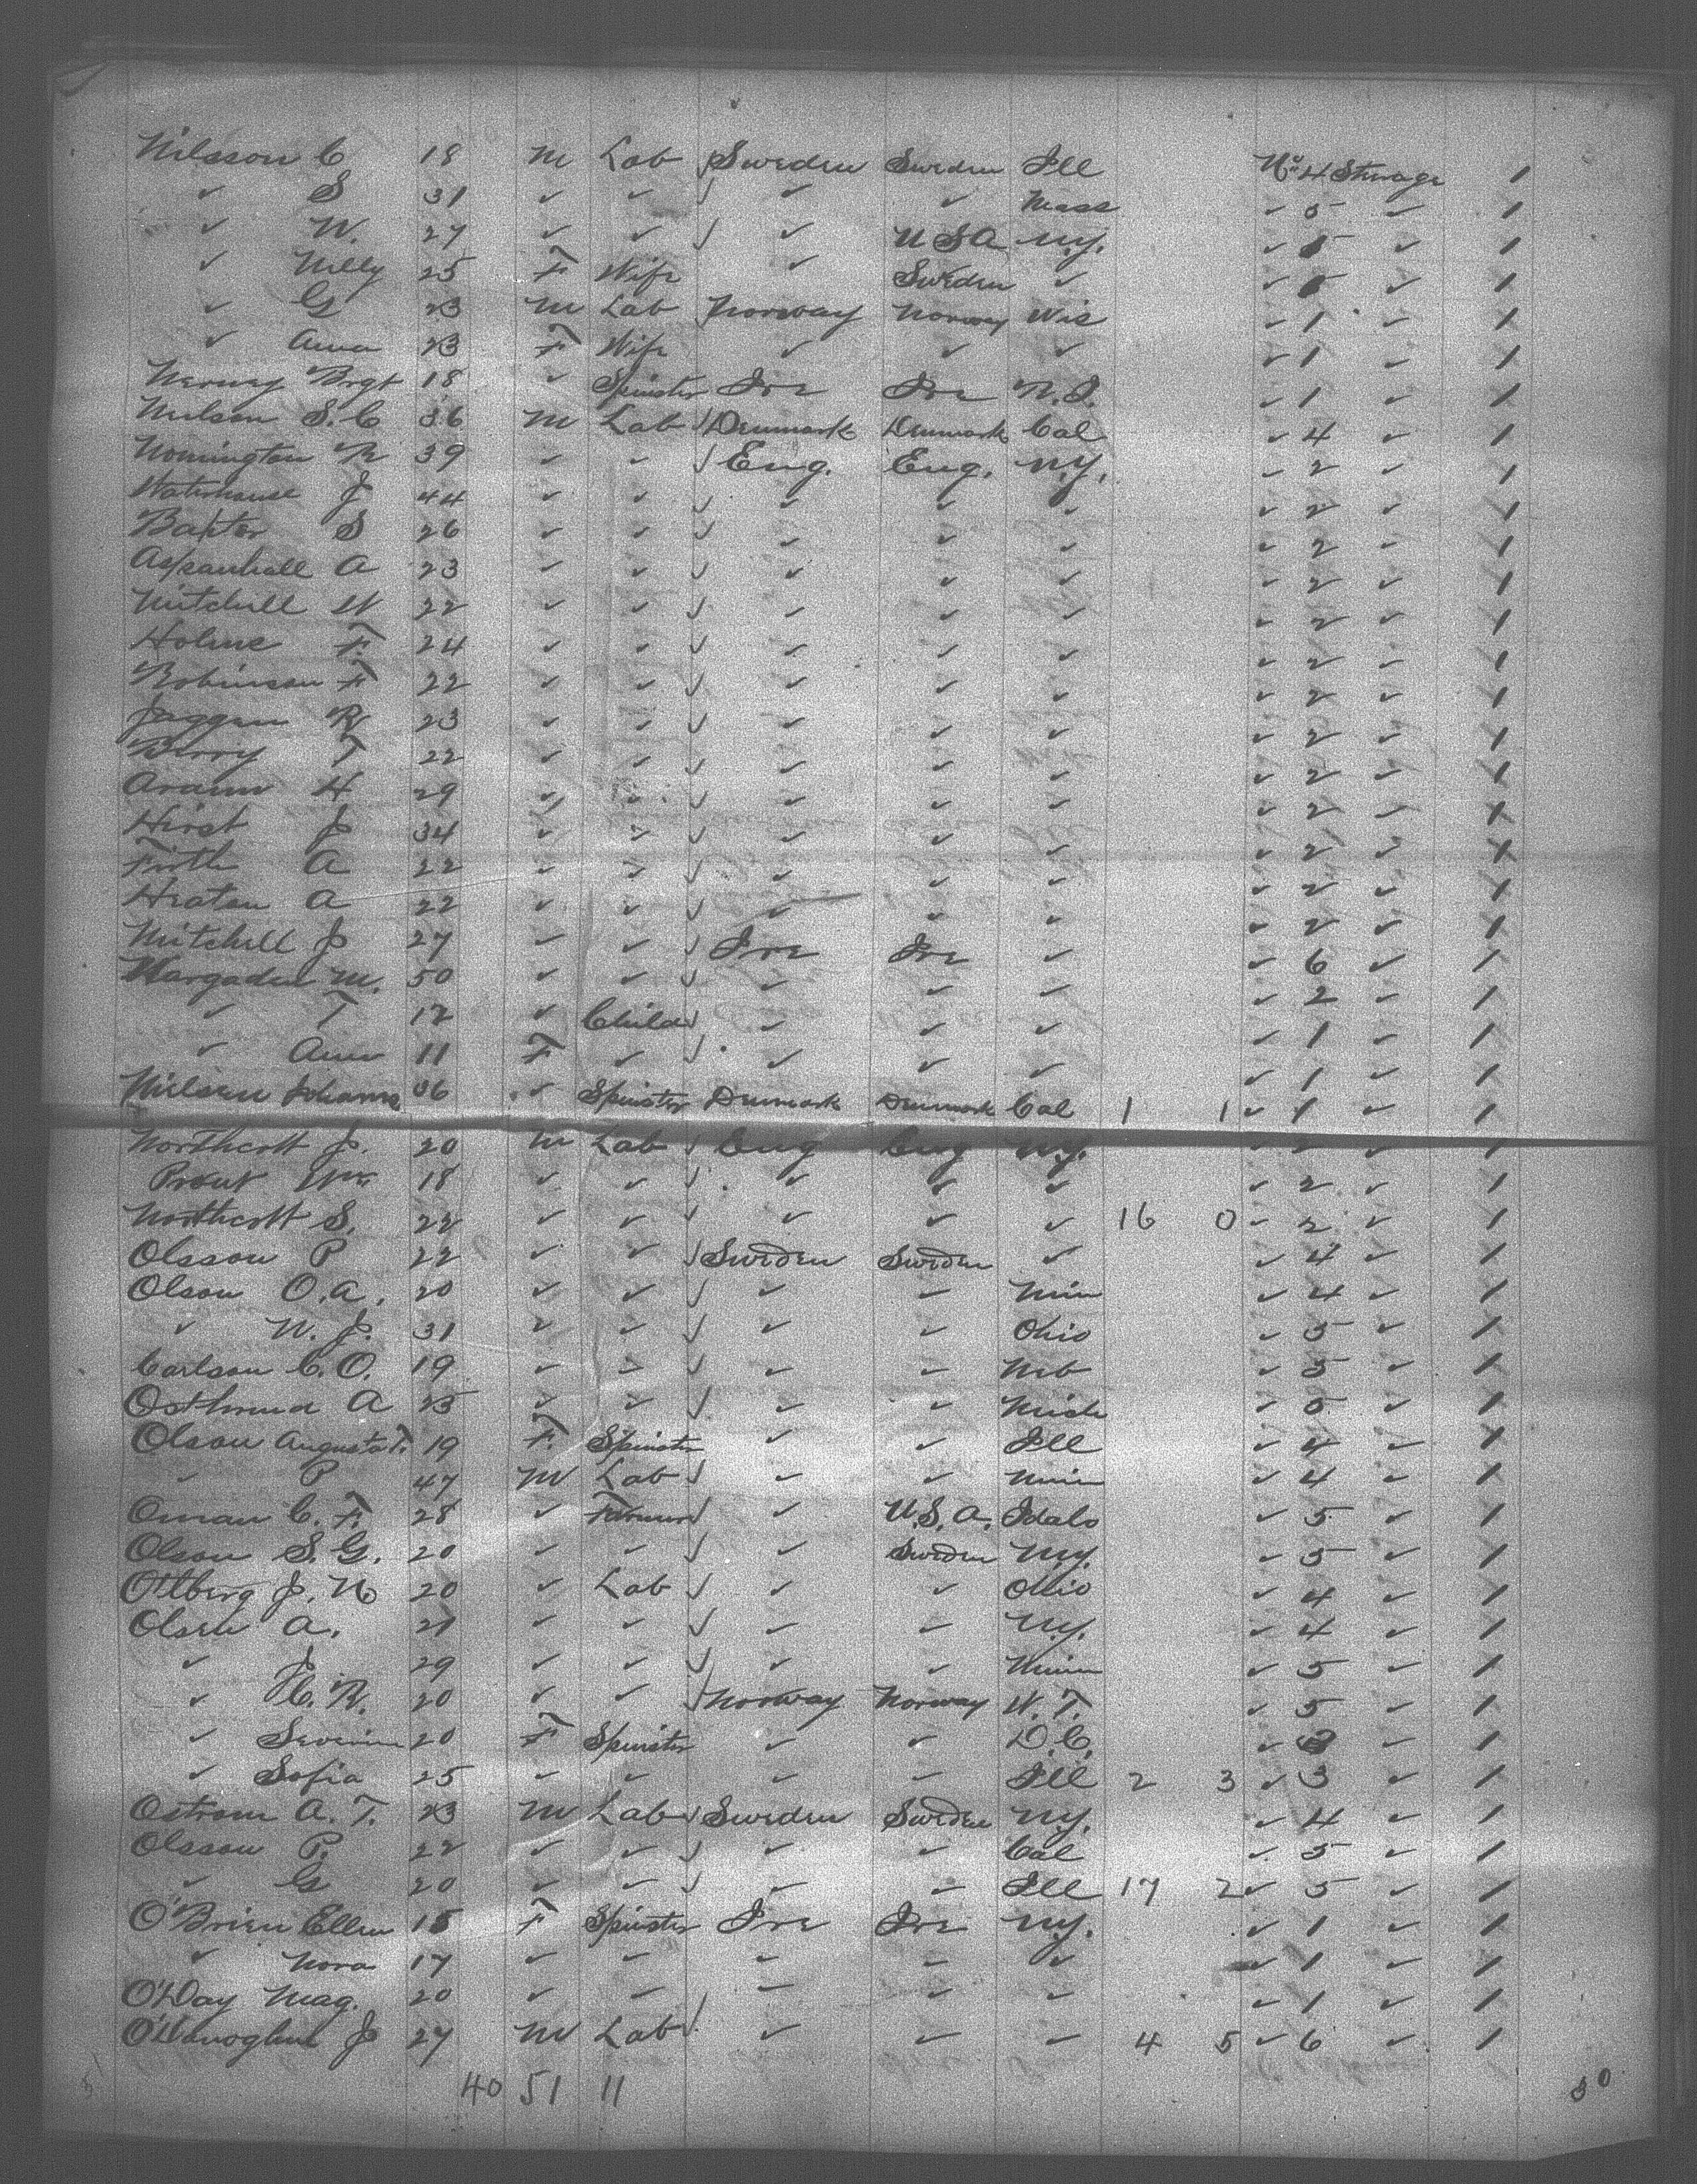 Nilsson C 18 M Lab Sweden Sweden Ill No 4 Steerage 1
✓ S 31 ✓ ✓ ✓ ✓ Mass ✓ 5 ✓ 1
✓ W. 27 ✓ ✓ ✓ U S A N.Y. ✓ 5 ✓ 1
✓ Nelly 25 F Wife ✓ Sweden ✓ ✓ 5 ✓ 1
✓ G 23 M Lab Norway Norway Wis ✓ 1 ✓ 1
✓ Anna 23 F Wife ✓ ✓ ✓ ✓ 1 ✓ 1
Nerney Brgt 18 ✓ Spinster Ire Ire N.J. ✓ 1 ✓ 1
Nielson S. C 36 M Lab Denmark Denmark Cal ✓ 4 ✓ 1
Nonnington R 39 ✓ ✓ Eng. Eng. N.Y. ✓ 2 ✓ 1
Waterhouse J 44 ✓ ✓ ✓ ✓ ✓ ✓ 2 ✓ 1
Baxter S 26 ✓ ✓ ✓ ✓ ✓ ✓ 2 ✓ 1
Aspanhall A 23 ✓ ✓ ✓ ✓ ✓ ✓ 2 ✓ 1
Mitchell W 22 ✓ ✓ ✓ ✓ ✓ ✓ 2 ✓ 1
Holme F 24 ✓ ✓ ✓ ✓ ✓ ✓ 2 ✓ 1
Robinson F 22 ✓ ✓ ✓ ✓ ✓ ✓ 2 ✓ 1
Jaggen R 23 ✓ ✓ ✓ ✓ ✓ ✓ 2 ✓ 1
Berry T 22 ✓ ✓ ✓ ✓ ✓ ✓ 2 ✓ 1
H 29 ✓ ✓ ✓ ✓ ✓ ✓ 2 ✓ 1
Hirst J 34 ✓ ✓ ✓ ✓ ✓ ✓ 2 ✓ 1
Firth A 22 ✓ ✓ ✓ ✓ ✓ ✓ 2 ✓ 1
Heaton A 22 ✓ ✓ ✓ ✓ ✓ ✓ 2 ✓ 1
Mitchell J 27 ✓ ✓ Ire Ire ✓ ✓ 6 ✓ 1
Nargaden M. 50 ✓ ✓ ✓ ✓ ✓ ✓ 2 ✓ 1
✓ T 12 ✓ Child ✓ ✓ ✓ ✓ 1 ✓ 1
✓ Ann 11 F ✓ ✓ ✓ ✓ ✓ 1 ✓ 1
Nielsen Johanne 36 ✓ Spinster Denmark Denmark Cal 1 1 ✓ 1 ✓ 1
Northcott J. 20 M Lab Eng Eng N.Y. ✓ 2 ✓ 1
Prout Wm 18 ✓ ✓ ✓ ✓ ✓ ✓ 2 ✓ 1
Northcott S. 22 ✓ ✓ ✓ ✓ ✓ 16 0 ✓ 2 ✓ 1
Olsson P 22 ✓ ✓ Sweden Sweden ✓ ✓ 4 ✓ 1
Olson O. A. 20 ✓ ✓ ✓ ✓ Min ✓ 4 ✓ 1
✓ N. J. 31 ✓ ✓ ✓ ✓ Ohio ✓ 5 ✓ 1
Carlson C. O. 19 ✓ ✓ ✓ ✓ Neb ✓ 5 ✓ 1
Osthmua A 25 ✓ ✓ ✓ ✓ Mich ✓ 5 ✓ 1
Olson Augusta T. 19 F. Spinster ✓ ✓ Ill ✓ 4 ✓ 1
✓ P 47 M Lab ✓ ✓ Minn ✓ 4 ✓ 1
Oman C. F. 28 ✓ Farmer ✓ U.S.A. Idaho ✓ 5 ✓ 1
Olson S. G. 20 ✓ ✓ ✓ Sweden N.Y. ✓ 5 ✓ 1
Ottberg J. N 20 ✓ Lab ✓ ✓ Ohio ✓ 4 ✓ 1
Olsen A. 21 ✓ ✓ ✓ ✓ N.Y. ✓ 4 ✓ 1
✓ J 29 ✓ ✓ ✓ ✓ Minn ✓ 5 ✓ 1
✓ C. R. 20 ✓ ✓ Norway Norway W. T. ✓ 5 ✓ 1
✓ Severine 20 F Spinster ✓ ✓ D. C. ✓ 3 ✓ 1
✓ Sofia 25 ✓ ✓ ✓ ✓ Ill 2 3 ✓ 3 ✓ 1
Ostrom A. T. 23 M Lab Sweden Sweden N.Y. ✓ 4 ✓ 1
Olsson P. 22 ✓ ✓ ✓ ✓ Cal ✓ 5 ✓ 1
✓ G 20 ✓ ✓ ✓ ✓ Ill 17 2 ✓ 5 ✓ 1
O'Brien Ellen 18 F Spinster Ire Ire N.Y. ✓ 1 ✓ 1
✓ Nora 17 ✓ ✓ ✓ ✓ ✓ ✓ 1 ✓ 1
O'Day Mag. 20 ✓ ✓ ✓ ✓ ✓ ✓ 1 ✓ 1
O'Donoghue J 27 M Lab ✓ ✓ ✓ 4 5 ✓ 6 ✓ 1
40 51 11